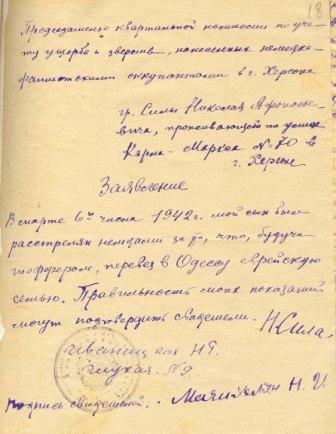 18
Председателю квартальной комиссии по уче-
ту ущерба и зверств, нанесенных немецко-
фашистскими оккупантами в г. Херсоне
гр. Силы Николая Афанась-
евича, проживающего по улице
Карла-Маркса № 70 в
г. Херсоне
Заявление
В марте 6го числа 1942г. мой сын был
расстрелян немцами за то, что, будучи
шофером, перевез в Одессу еврейскую
семью. Правильность моих показаний
могут подтвердить свидетели. Н Сила.
Глухая
подпись свидетелей. Н. И.